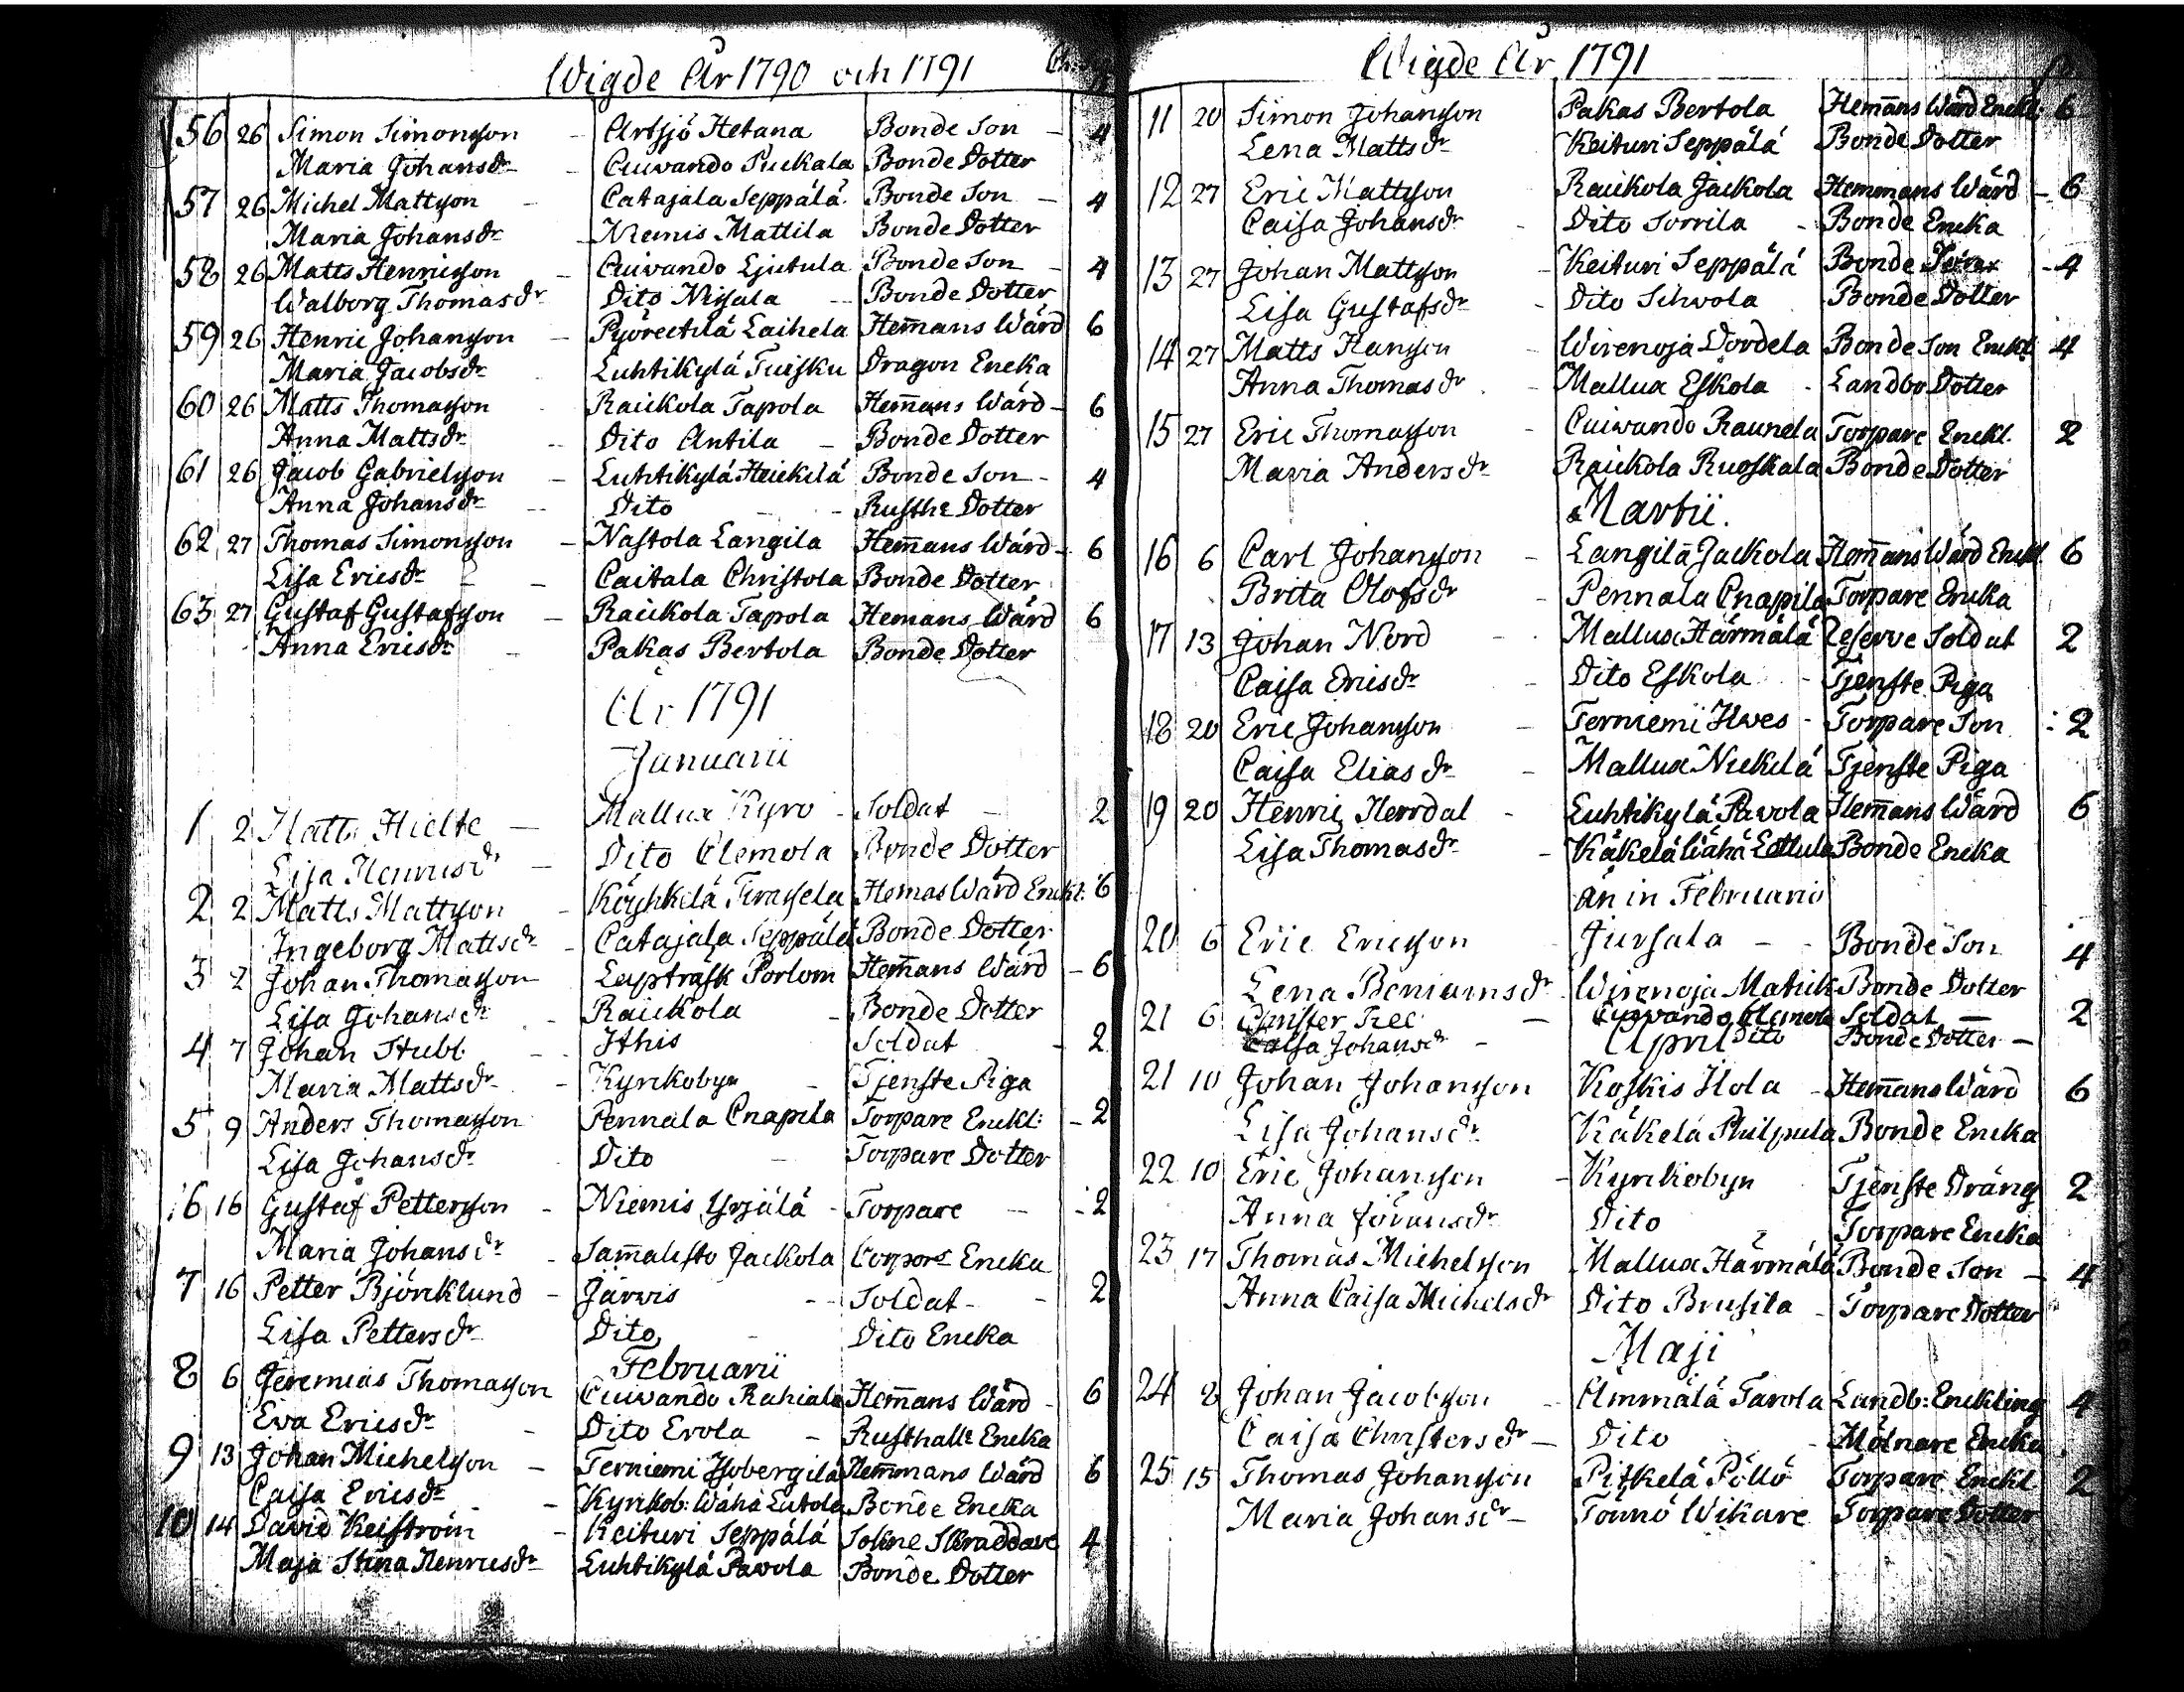 Wigde År 1790 och 1791
56 26 Simon Simonsson - Artsjö Hetana Bonde Son - 4
Maria Johansdr - Cuivando Puckala Bonde Dotter
57 26 Michel Mattsson - Catajala Seppälä Bonde Son - 4
Maria Johansdr - Niemis Mattila Bonde Dotter
58 26 Matts Henricsson - Cuivando Ljutula Bonde Son - 4
Walborg Thomasdr Dito Nisala - Bonde Dotter
59 26 Henric Johansson - Pyörectilä Laihela Hem̄ans Wård 6
Maria Jacobsdr Luhtikylä Tuisku Dragon Encka
60 26 Matts Thomasson Raickola Tapola Hem̄ans Wård - 6
Anna Mattsdr - Dito Antila - Bonde Dotter
61 26 Jacob Gabrielsson - Luhtikylä Heickilä Bonde Son - 4
Anna Johansdr - Dito - - Rusth: Dotter
62 27 Thomas Simonsson - Nastola Langila Hem̄ans Wård - 6
Lisa Ericsdr - - Caitala Christola Bonde Dotter
63 27 Gustaf Gustafsson - Raickola Tapola Hemans Wård 6
Anna Ericsdr - Pakas Bertola Bonde Dotter
År 1791
Januarii
1 2 Matts Hielte - Mallux Kyrö - Soldat - 2
Lisa Henricsdr - Dito Clemola Bonde Dotter
2 2 Matts Mattsson - Köyhkilä Hemas Wård Enckl: 6
Ingeborg Mattsdr - Catajala Seppälä Bonde Dotter
3 2 Johan Thomasson Laptrask Porlom Hem̄ans Wård - 6
Lisa Johansdr - Raickola - Bonde Dotter
4 7 Johan Stubb - Ithis Soldat - 2
Maria Mattsdr - Kyrkobyn - Tjenste Piga
5 9 Anders Thomasson Pennala Cnapila Torpare Enckl: - 2
Lisa Johansdr Dito - Torpare Dotter
6 16 Gustaf Pettersson - Niemis Yrjälä - Torpare - - 2
Maria Johansdr - Sam̄alisto Jackola Corpors Encka
7 16 Petter Björcklund - Järwis - - Soldat - - 2
Lisa Pettersdr Dito - Dito Encka
Februarii
8 6 Jeremias Thomasson Cuivando Rahiala Hem̄ans Wård - 6
Eva Ericsdr - Dito Erola - Rusthall: Encka
9 13 Johan Michelsson - Terniemi Isobergilä Hem̄mans Wård 6
Caisa Ericsdr - - Kyrkob: Wähä Eutola Bonde Encka
10 14 David Keiström - Keituri Seppälä Sokne Skraddare 4
Maja Stina Henricsdr Luhtikylä Pavola Bonde Dotter
Wigde År 1791
11 20 Simon Johansson Pakas Bertola Hem̄ans Wård Enckl: 6
Lena Mattsdr Keituri Seppälä Bonde Dotter
12 27 Eric Mattsson Raickola Jackola Hemmans Wård - 6
Caisa Johansdr - Dito Sorrila - Bonde Encka
13 27 Johan Mattsson - Keituri Seppälä Bonde - 4
Lisa Gustafsdr - Dito Silvola Bonde Dotter
14 27 Matts Hansson - Wirenoja Dordela Bonde Son Enckl 4
Anna Thomasdr - Mallux Eskola - Landbo Dotter
15 27 Eric Thomasson - Cuivando Raunela Torpare Enckl. 2
Maria Andersdr Raickola Ruoskala Bonde Dotter
Martii.
16 6 Carl Johansson - Langilä Jackola Hem̄ans Wård Enckl 6
Brita Olofsdr - Pennala Cnapila Torpare Encka
17 13 Johan Nord - Mallux Härmälä Reserve Soldat 2
Caisa Ericsdr - Dito Eskola - Tjenste Piga
18 20 Eric Johansson - Terniemi Ilves - Torpare Son - 2
Caisa Eliasdr - Mallux Nickilä Tjenste Piga
19 20 Henric Herrdal - Luhtikylä Pavola Hem̄ans Wård 6
Lisa Thomasdr - Käkelä Wähä Eettula Bonde Encka
än in Februario
20 6 Eric Ericsson Jursala - - Bonde Son 4
Lena Beniamsdr Wirenoja Matick Bonde Dotter
21 6 Christer Tree - Cuivando Clemola Soldat - 2
Caisa Johansdr - Dito Bonde Dotter -
April
21 10 Johan Johansson Koskis Ilola - Hem̄ans Wård 6
Lisa Johansdr Käkelä Philpula Bonde Encka
22 10 Eric Johansson - Kyrkobyn Tjenste Dräng 2
Anna Jöransdr Dito Torpare Encka
23 17 Thomas Michelsson Mallux Härmälä Bonde Son - 4
Anna Caisa Michelsdr Dito Brusila - Torpare Dotter
Maji
24 8 Johan Jacobsson - Ämmälä Tavola Landb: Enckling 4
Caisa Christersdr - Dito - Mölnare Encka
25 15 Thomas Johansson Pitkelä Pöllö Torpare Enckl 2
Maria Johansdr - Tönnö Wikare Torpare Dotter